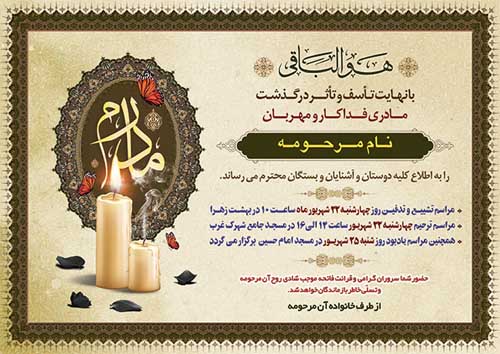 هو الباقی
مادرم
با نهایت تأسف و تأثر درگذشت
مادری فداکار و مهربان
نام مرحومه
را به اطلاع کلیه دوستان و آشنایان و بستگان محترم می رساند.
مراسم تشییع و تدفین روز چهارشنبه ۲۲ شهریور ماه ساعت ۱۰ در بهشت زهرا
مراسم ترحیم چهارشنبه ۲۲ شهریور ساعت ۱۴ الی ۱۶ در مسجد جامع شهرک غرب
همچنین مراسم یادبود روز شنبه ۲۵ شهریور در مسجد امام حسین برگزار می گردد
حضور شما سروران گرامی و قرائت فاتحه موجب شادی روح آن مرحومه
و تسلی خاطر بازماندگان خواهد شد.
از طرف خانواده آن مرحومه